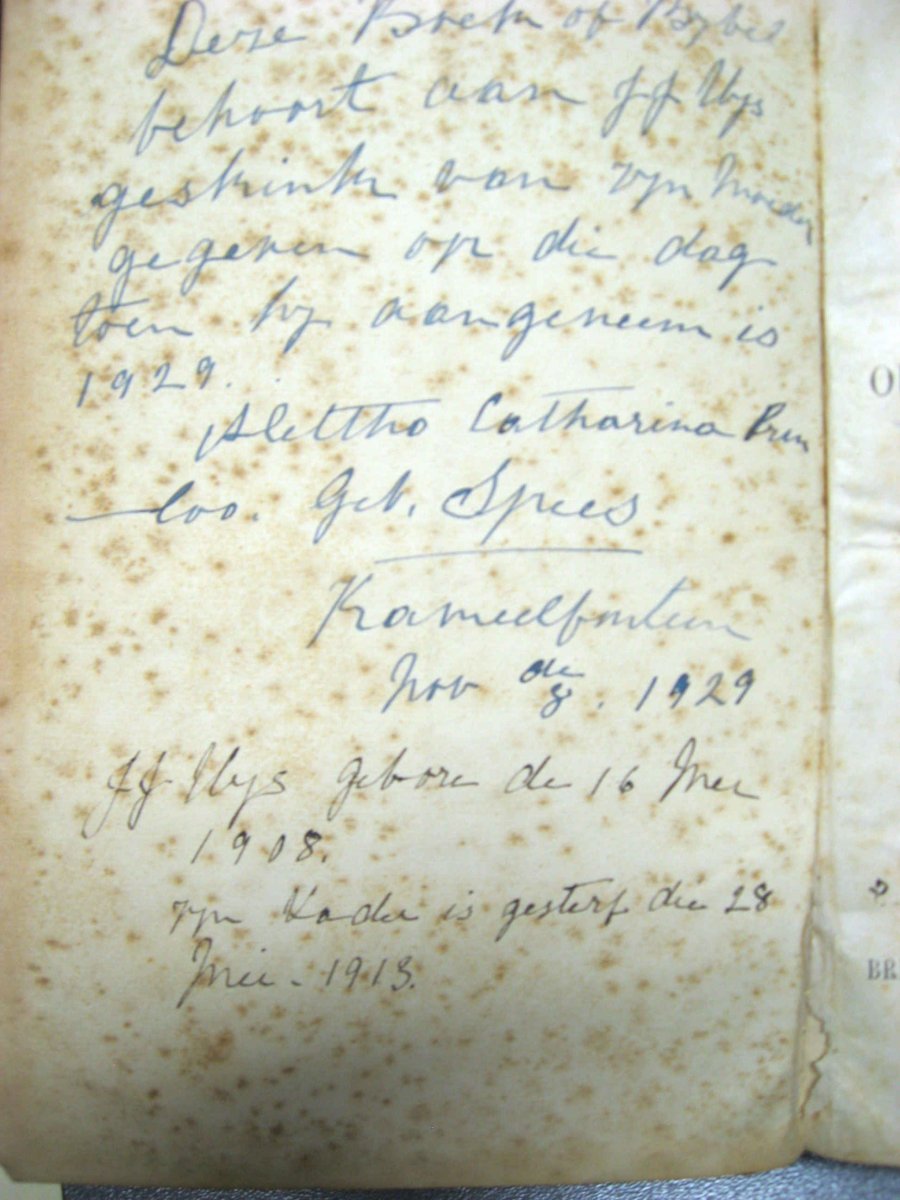 Deze Boek of Bybel
behoort aan J J Uys
geskink van zyn Moeder
gegeven op die dag
toen hy aangeneem is
1929.
Alettha Catharina Prins
loo. Geb, Spies
Kameelfontein
Nov de 8. 1929
J J Uys gebore de 16 Mei
1908.
zyn Vader is gesterf die 28
Mei - 1913.
O
BR